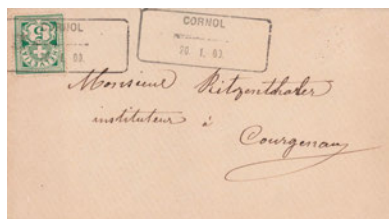 CORNOL
20. 1. 03.
CORNOL
5
Monsieur Ritzenthaler
instituteur à
Courgenay